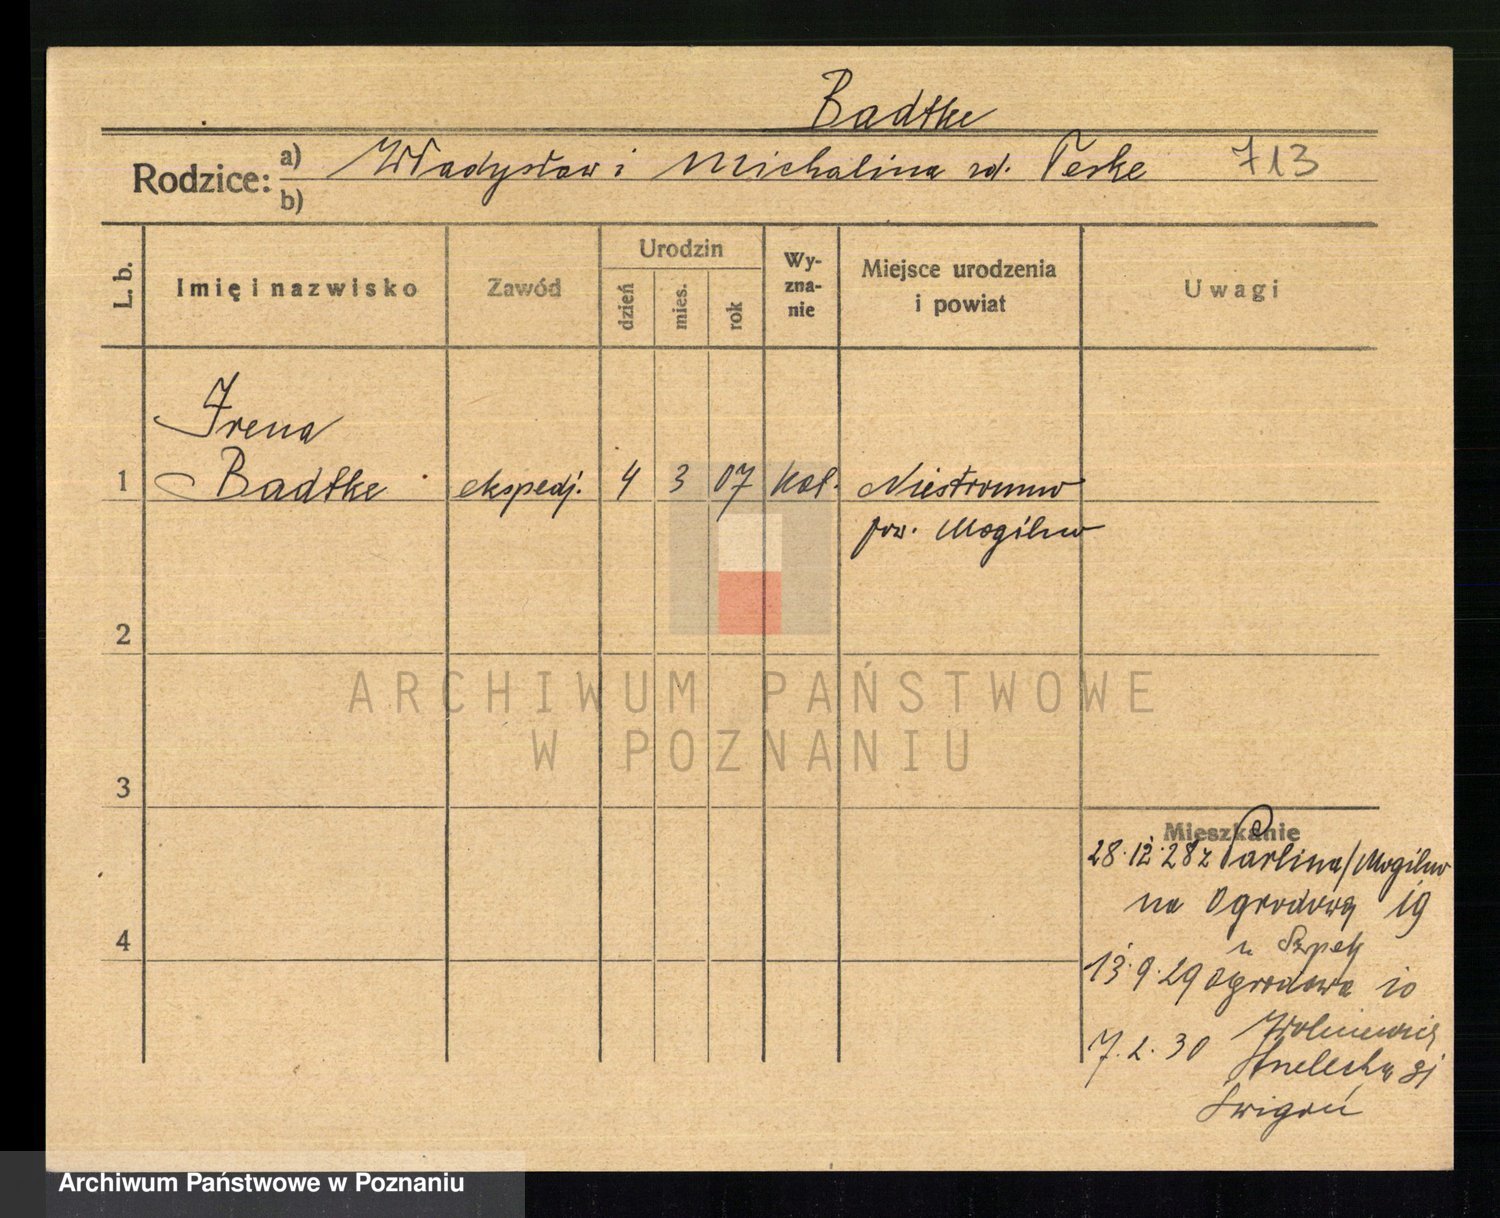 Badtke
Rodzice: a) Władysław i Michalina zd. Teske 713
b)
L. b.
Imię i nazwisko
Zawód
Urodzin
dzień
mies.
rok
Wy-
zna-
nie
Miejsce urodzenia
i powiat
Uwagi
Irena
1 Badtke ekspedj. 4 3 07 kat.
pow. Mogilno
2
3
4
Mieszkanie
28.12.28 z Parlina/Mogilno
na Ogrodową 19
13.9.29 Ogrodowa 10
7.2.30
Strzelecka 31
ARCHIWUM PAŃSTWOWE
W POZNANIU
Archiwum Państwowe w Poznaniu